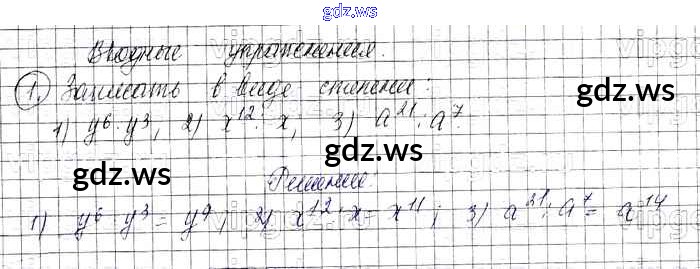 gdz.ws
Вводные упражнения.
1. Записать в виде степени:
gdz.ws
1) y⁶·y³, 2) x¹²:x, 3) a²¹:a⁷.
gdz.ws
gdz.ws
Решение.
gdz.ws
1) y⁶·y³ = y⁹; 2) x¹²:x = x¹¹; 3) a²¹:a⁷ = a¹⁴